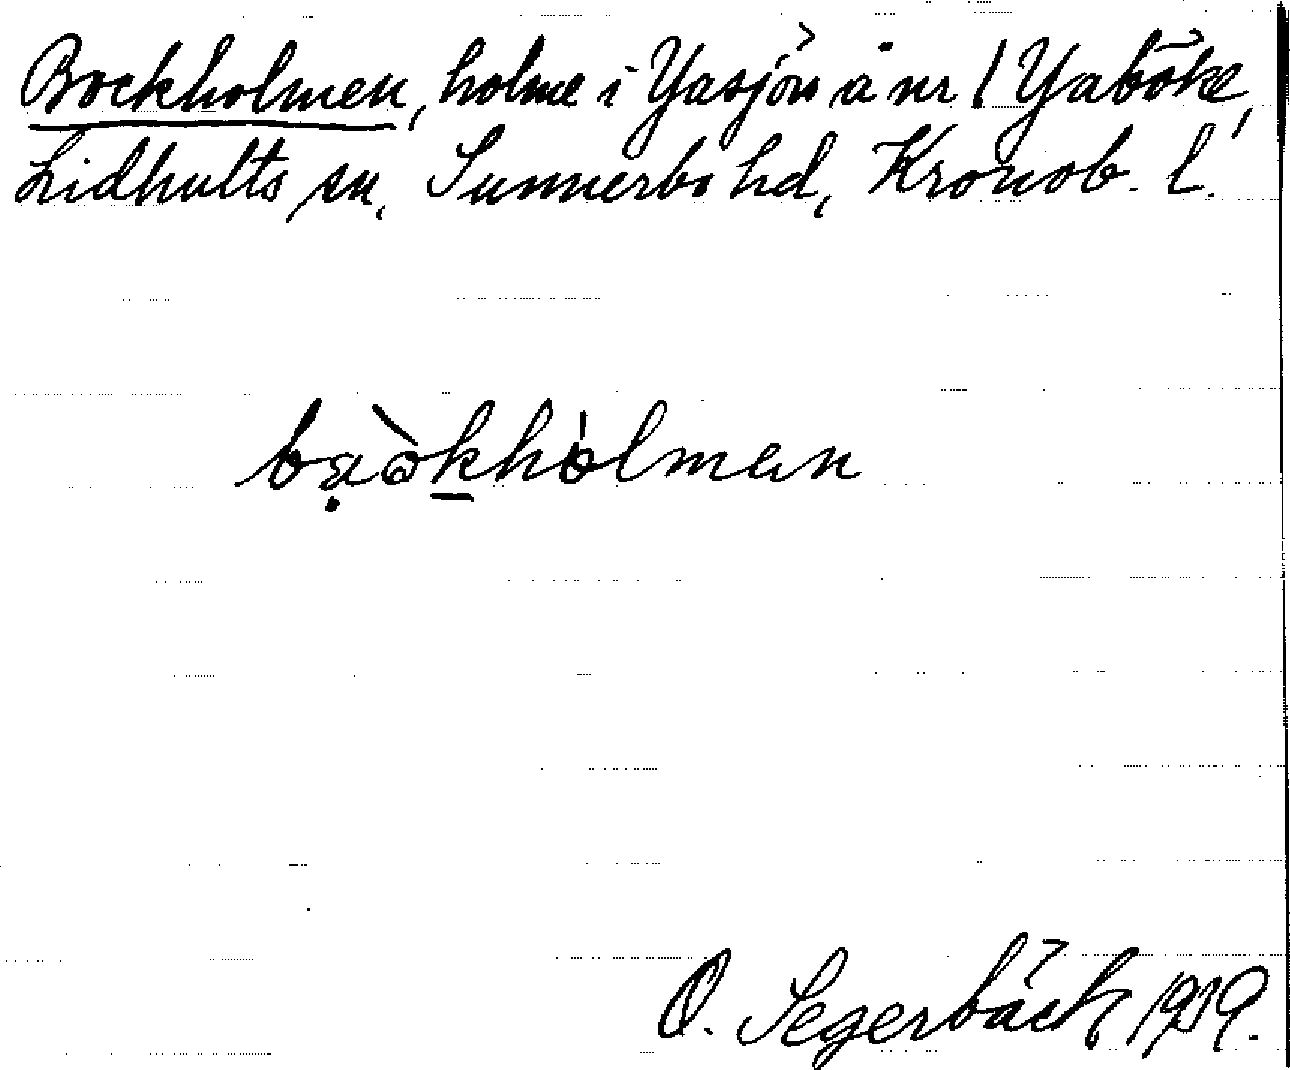 Bockholmen, holme i Yasjön å nr 1 Yaböke,
Lidhults sn, Sunnerbo hd, Kronob. l.
bạòkhòlmen
O. Segerbäck 1919.